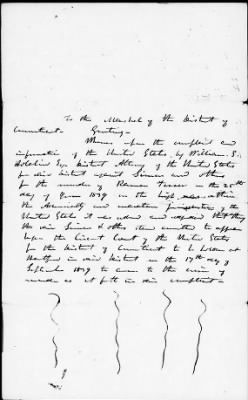 To the Marshal of the District of
Connecticut Greeting
Whereas upon the complaint and
information of the United States, by William S.
Holabird Esqr District Attorney of the United States
for said District against Sinqua and others
for the murder of Ramon Ferrer on the 28th
day of June 1839 on the high seas within
the Admiralty and maritime jurisdiction of the
United States it was ordered and adjudged that they
the said Sinqua & others stand committed to appear
before the Circuit Court of the United States
for the District of Connecticut to be holden at
Hartford in said District on the 17th day of
September 1839 to answer to the crime of
murder as set forth in said complaint